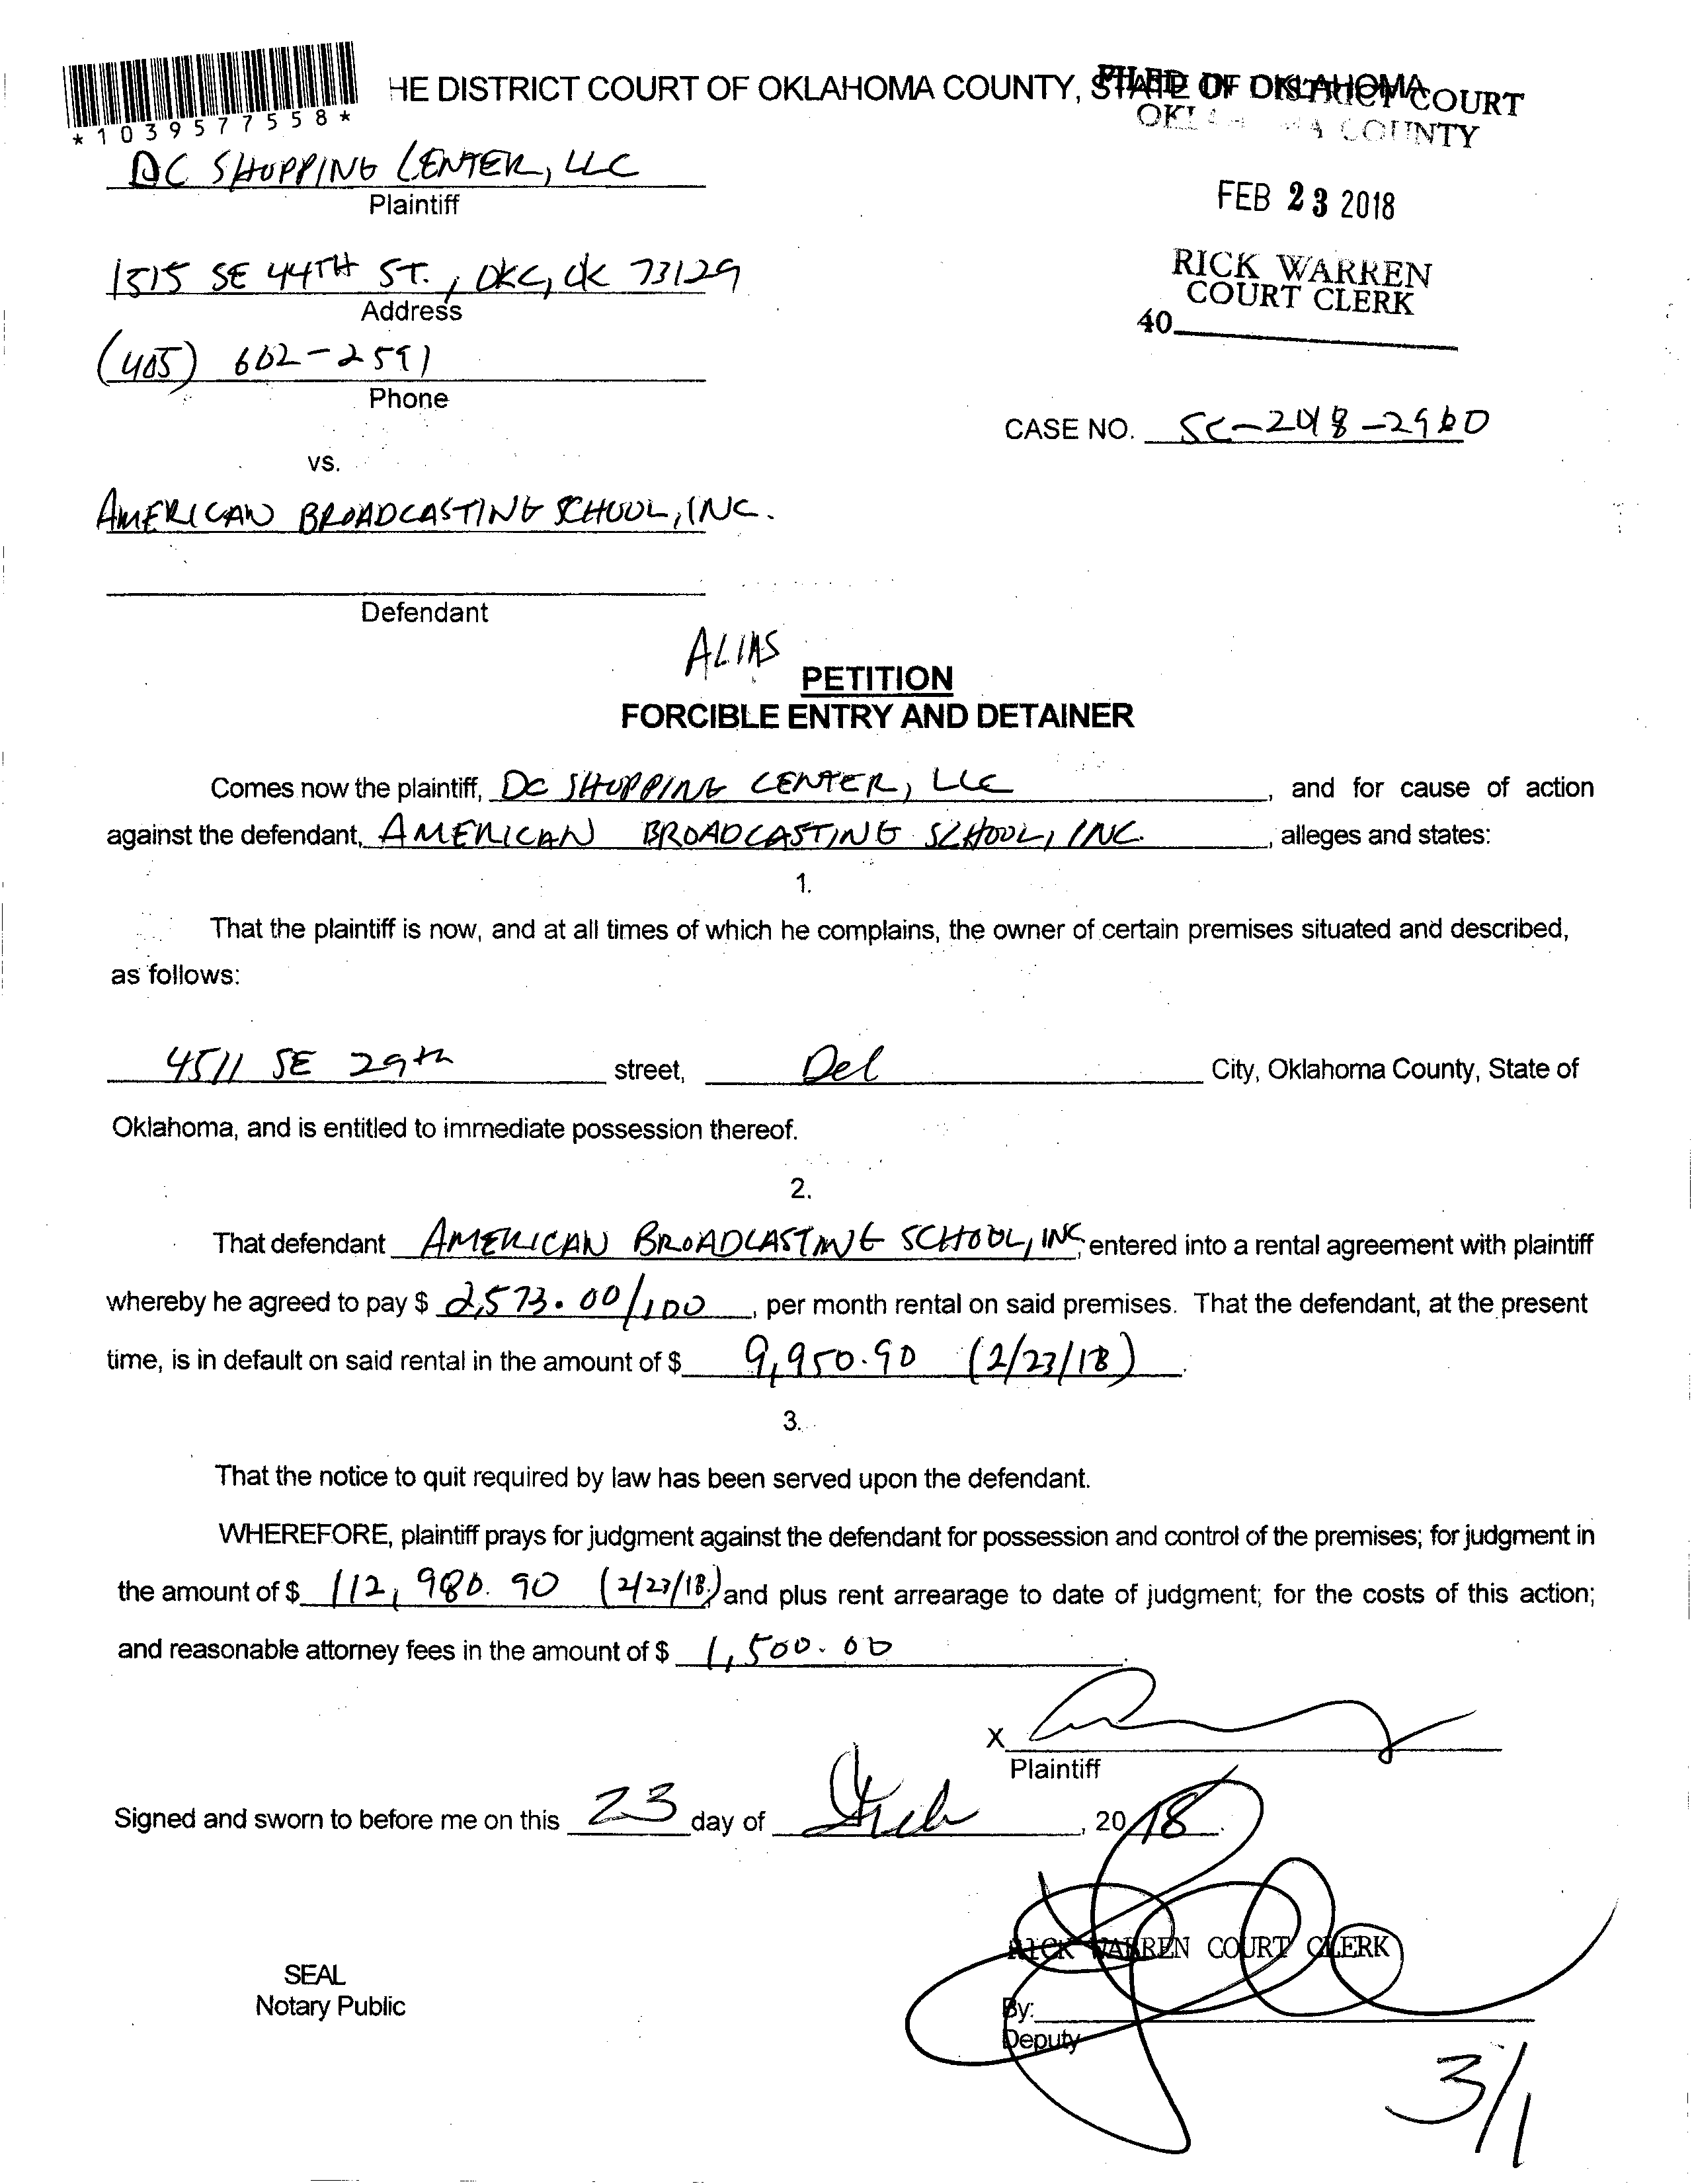 *1039577558*
HE DISTRICT COURT OF OKLAHOMA COUNTY, STATE OF OKLAHOMA
FILED IN DISTRICT COURT
OKLAHOMA COUNTY
DC SHOPPING CENTER, LLC
Plaintiff
FEB 23 2018
1515 SE 44TH ST., OKC, OK 73129
Address
RICK WARREN
COURT CLERK
40
(405) 602-2591
Phone
CASE NO. SC-2018-2960
vs.
AMERICAN BROADCASTING SCHOOL, INC.
Defendant
ALIAS
PETITION
FORCIBLE ENTRY AND DETAINER
Comes now the plaintiff, DC SHOPPING CENTER, LLC, and for cause of action
against the defendant, AMERICAN BROADCASTING SCHOOL, INC., alleges and states:
1.
That the plaintiff is now, and at all times of which he complains, the owner of certain premises situated and described,
as follows:
4511 SE 29th street, Del City, Oklahoma County, State of
Oklahoma, and is entitled to immediate possession thereof.
2.
That defendant AMERICAN BROADCASTING SCHOOL, INC, entered into a rental agreement with plaintiff
whereby he agreed to pay $ 2,573.00/100, per month rental on said premises. That the defendant, at the present
time, is in default on said rental in the amount of $ 9,950.90 (2/23/18).
3.
That the notice to quit required by law has been served upon the defendant.
WHEREFORE, plaintiff prays for judgment against the defendant for possession and control of the premises; for judgment in
the amount of $ 112,980.90 (2/23/18) and plus rent arrearage to date of judgment; for the costs of this action;
and reasonable attorney fees in the amount of $ 1,500.00.
X
Plaintiff
Signed and sworn to before me on this 23 day of Feb, 2018.
RICK WARREN COURT CLERK
SEAL
Notary Public
By:
Deputy
3/1